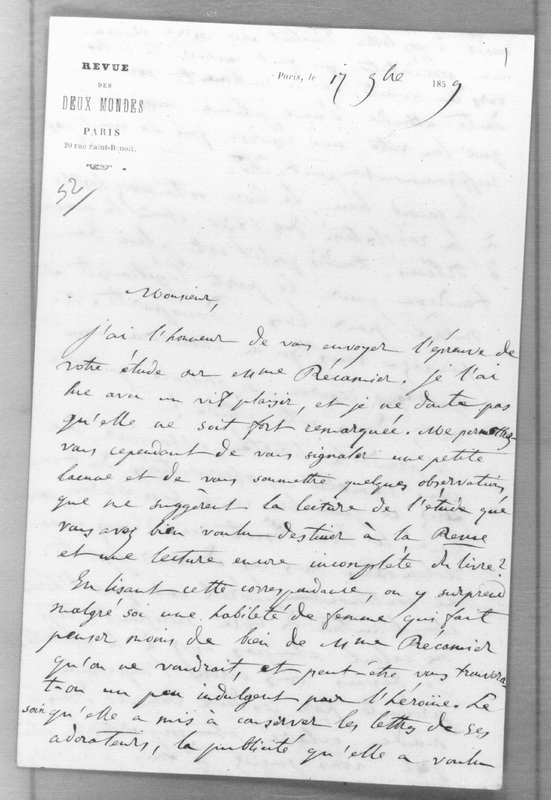 1
REVUE
DES
DEUX MONDES
PARIS
20 rue Saint-Benoit.
Paris, le 17 9bre 1859
52/
Monsieur,
J'ai l'honneur de vous envoyer l'épreuve de
votre étude sur Mme Récamier. Je l'ai
lue avec un vif plaisir, et je ne doute pas
qu'elle ne soit fort remarquée. Me permettez
vous cependant de vous signaler une petite
lacune et de vous soumettre quelques observations
que me suggèrent la lecture de l'étude que
vous avez bien voulu destiner à la Revue
et une lecture encore incomplète du livre?
En lisant cette correspondance, on y surprend
malgré soi une habileté de femme qui fait
penser moins de bien de Mme Récamier
qu'on ne voudrait, et peut-être vous trouvera
t-on un peu indulgent pour l'héroïne. Le
soin qu'elle a mis a conserver les lettres de ses
adorateurs, la publicité qu'elle a voulu